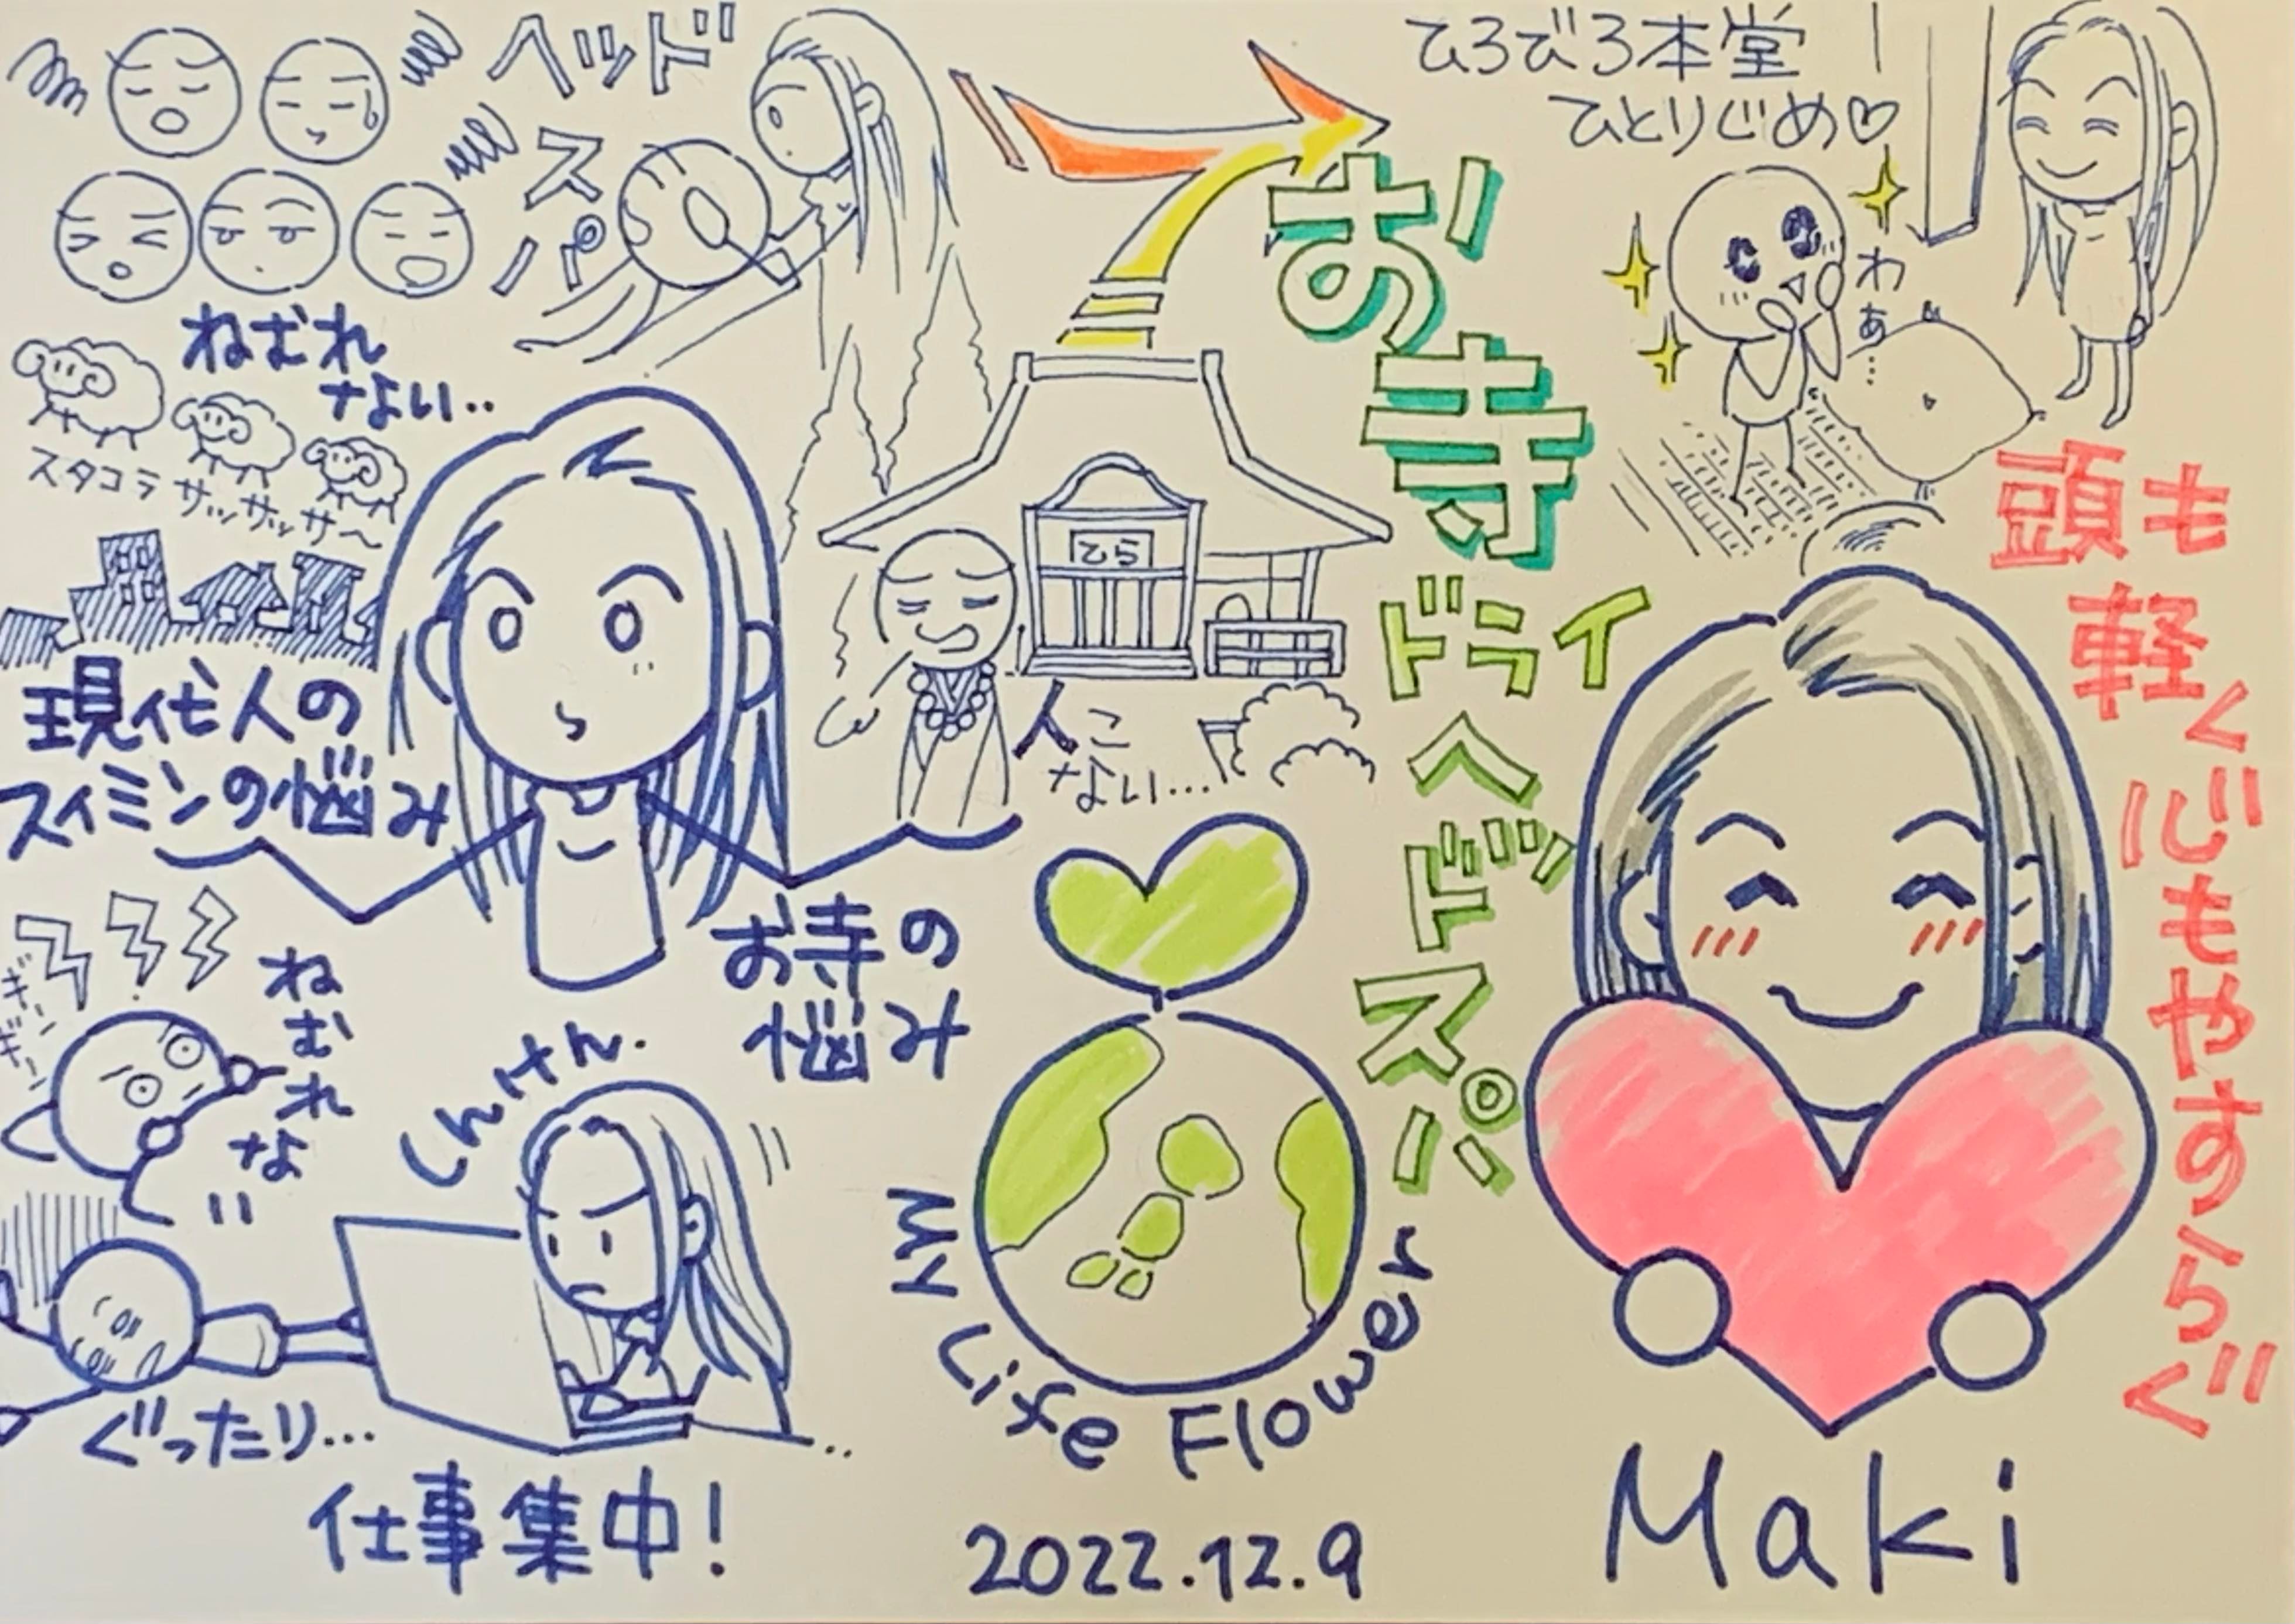 ヘッド
スパ
ねむれ
ない‥
スタコラ サッサッサ〜
現代人の
スイミンの悩み
ねむれない
ぐったり…
しんけん.
仕事集中!
お寺の
悩み
ひら
人こ
ない…
お寺
ドライ
ヘッドスパ
ひろびろ本堂
ひとりじめ♡
わぁ…
頭も
軽く
心もやすらぐ
My Life Flower
2022.12.9
Maki